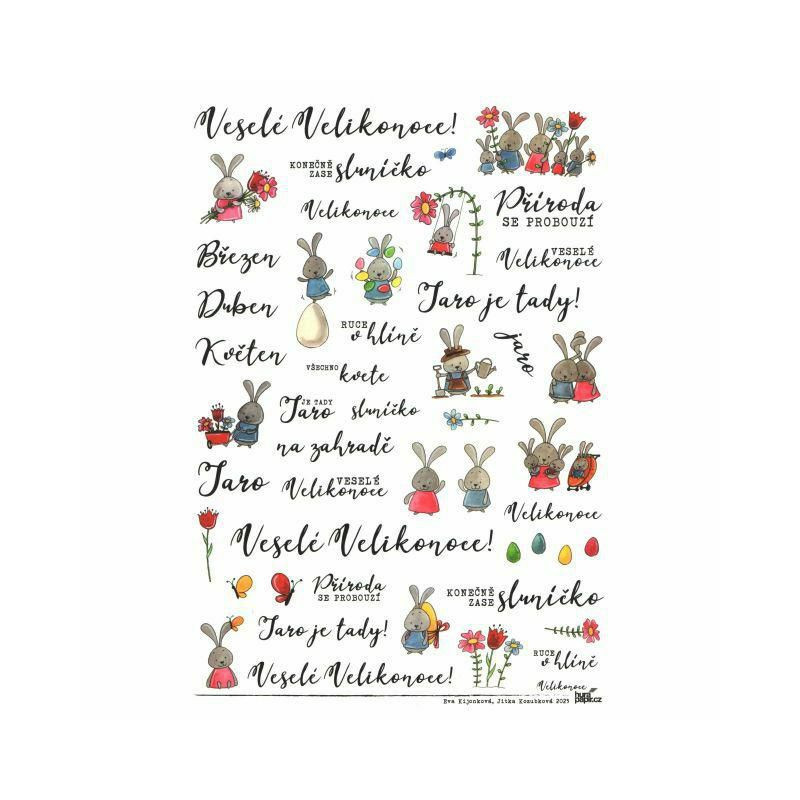 Veselé Velikonoce!
KONEČNĚ
ZASE sluníčko
Velikonoce
Příroda
SE PROBOUZÍ
Březen
VESELÉ
Velikonoce
Duben
Jaro je tady!
RUCE
v hlíně
jaro
Květen
VŠECHNO
kvete
JE TADY
Jaro
sluníčko
na zahradě
Jaro
VESELÉ
Velikonoce
Velikonoce
Veselé Velikonoce!
Příroda
SE PROBOUZÍ
KONEČNĚ
ZASE sluníčko
Jaro je tady!
RUCE
v hlíně
Veselé Velikonoce!
Velikonoce
Eva Kijonková, Jitka Kozubková 2023
hura
papir.cz